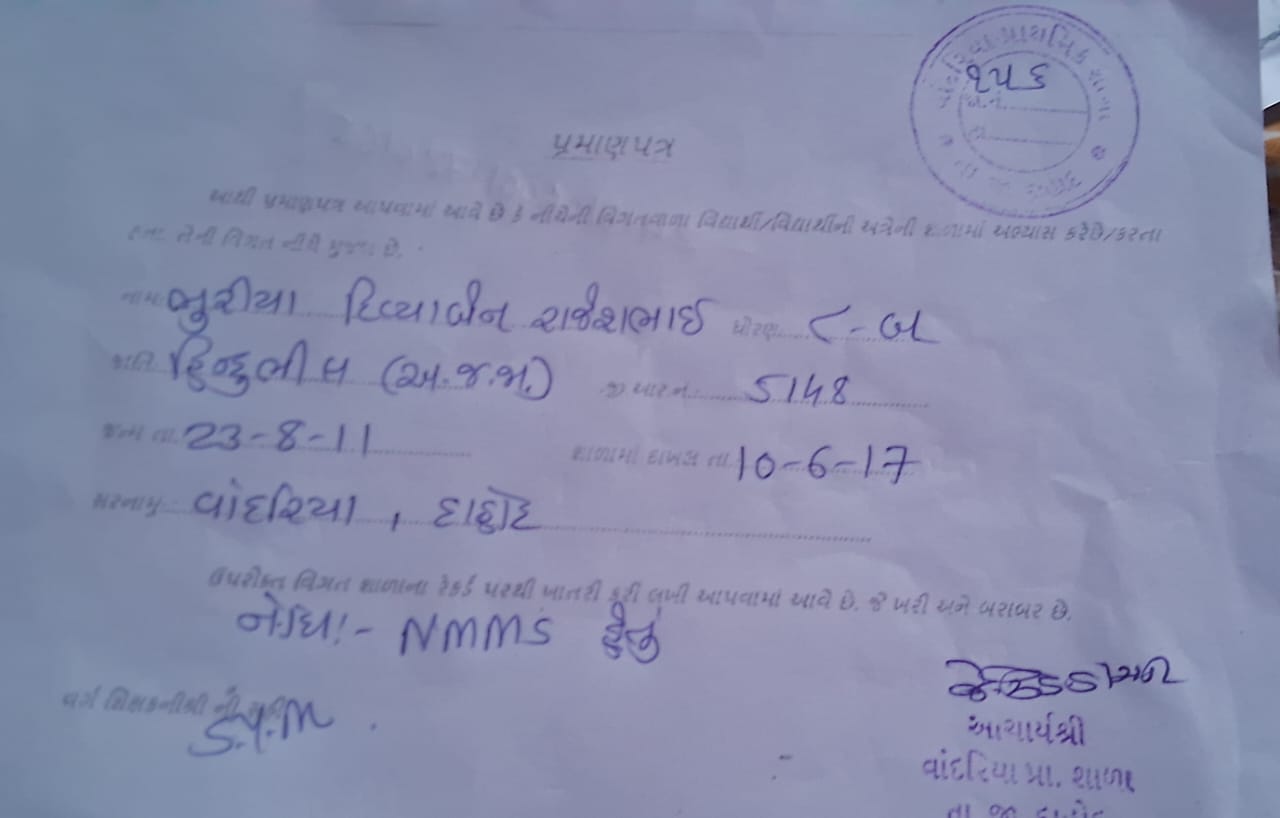 વાંદરિયા પ્રાથમિક શાળા
૧૫૬
જા.નં.
તા
પ્રમાણપત્ર
આથી પ્રમાણપત્ર આપવામાં આવે છે કે નીચેની વિગતવાળા વિદ્યાર્થી/વિદ્યાર્થીની અત્રેની શાળામાં અભ્યાસ કરેછે/કરતા
હતા. તેની વિગત નીચે મુજબ છે.
નામ ભુરીયા દિવ્યાબેન રાજેશભાઈ ધોરણ ૮-બ
જાતિ હિન્દુભીલ (અ.જ.જા.) જી આર નં. 5148
જન્મ તા. 23-8-11 શાળામાં દાખલ તા. 10-6-17
સરનામુ વાંદરિયા, દાહોદ
ઉપરોક્ત વિગત શાળાના રેકર્ડ પરથી ખાતરી કરી લખી આપવામાં આવે છે. જે ખરી અને બરાબર છે.
નોંધ:- NMMS હેતુ
વર્ગ શિક્ષકનીશ્રી ની સહી
S.Y.M
આચાર્યશ્રી
વાંદરિયા પ્રા. શાળા
તા જી દાહોદ